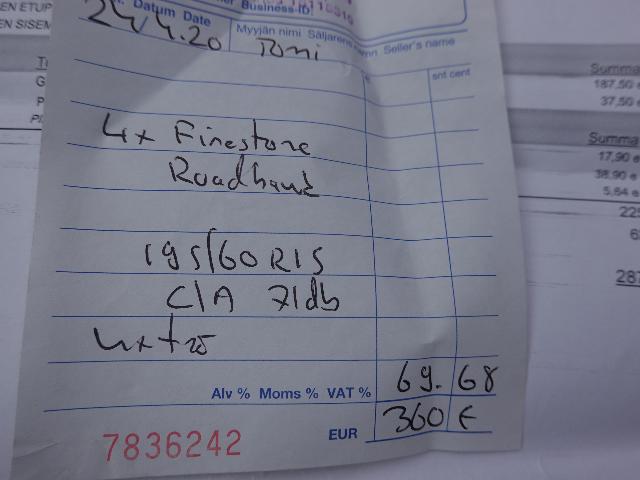 Datum Date
Business-ID:
24/4.20
Myyjän nimi Säljarens namn Seller's name
Toni
snt cent
4x Firestone
Roadhawk
195/60R15
C/A 71db
4x
Alv % Moms % VAT % 69.68
EUR 360 €
7836242
EN ETUP
EN SISEM
Summa
187,50 e
37,50 e
Summa
17,90 e
38,90 e
5,64 e